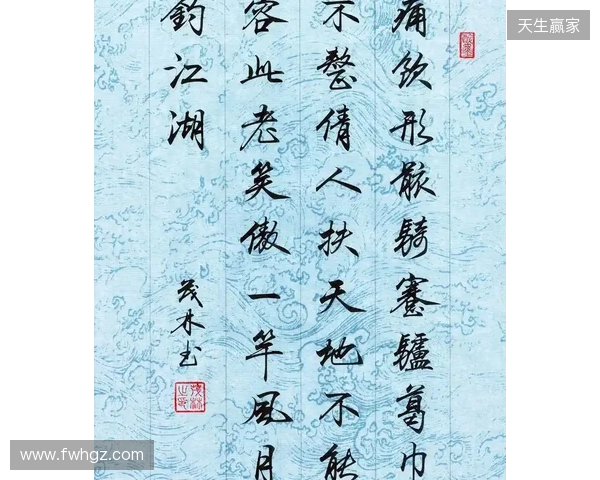 痛饮形骸騎蹇驢葛巾
不整倩人扶天地不能
容此老笑傲一竿風月
釣江湖
茂林书
天生赢家
www.fwhgz.com